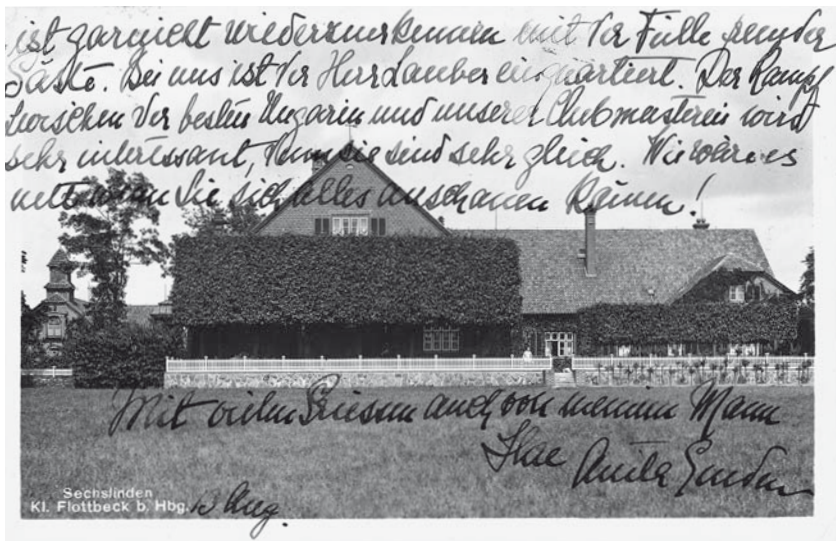 ist garnicht wiederzuerkennen mit der Fülle fremder
Gäste. Bei uns ist der Herr Lauber einquartiert. Der Kampf
zwischen der besten Ungarin und unserer Clubmasterin wird
sehr interessant, denn sie sind sehr gleich. Wie wäre es
nett wenn Sie sich alles anschauen kämen!
Mit vielen Grüssen auch von meinem Mann
Ihre Anita Emden
Sechslinden
Kl. Flottbeck b. Hbg.
13 Aug.